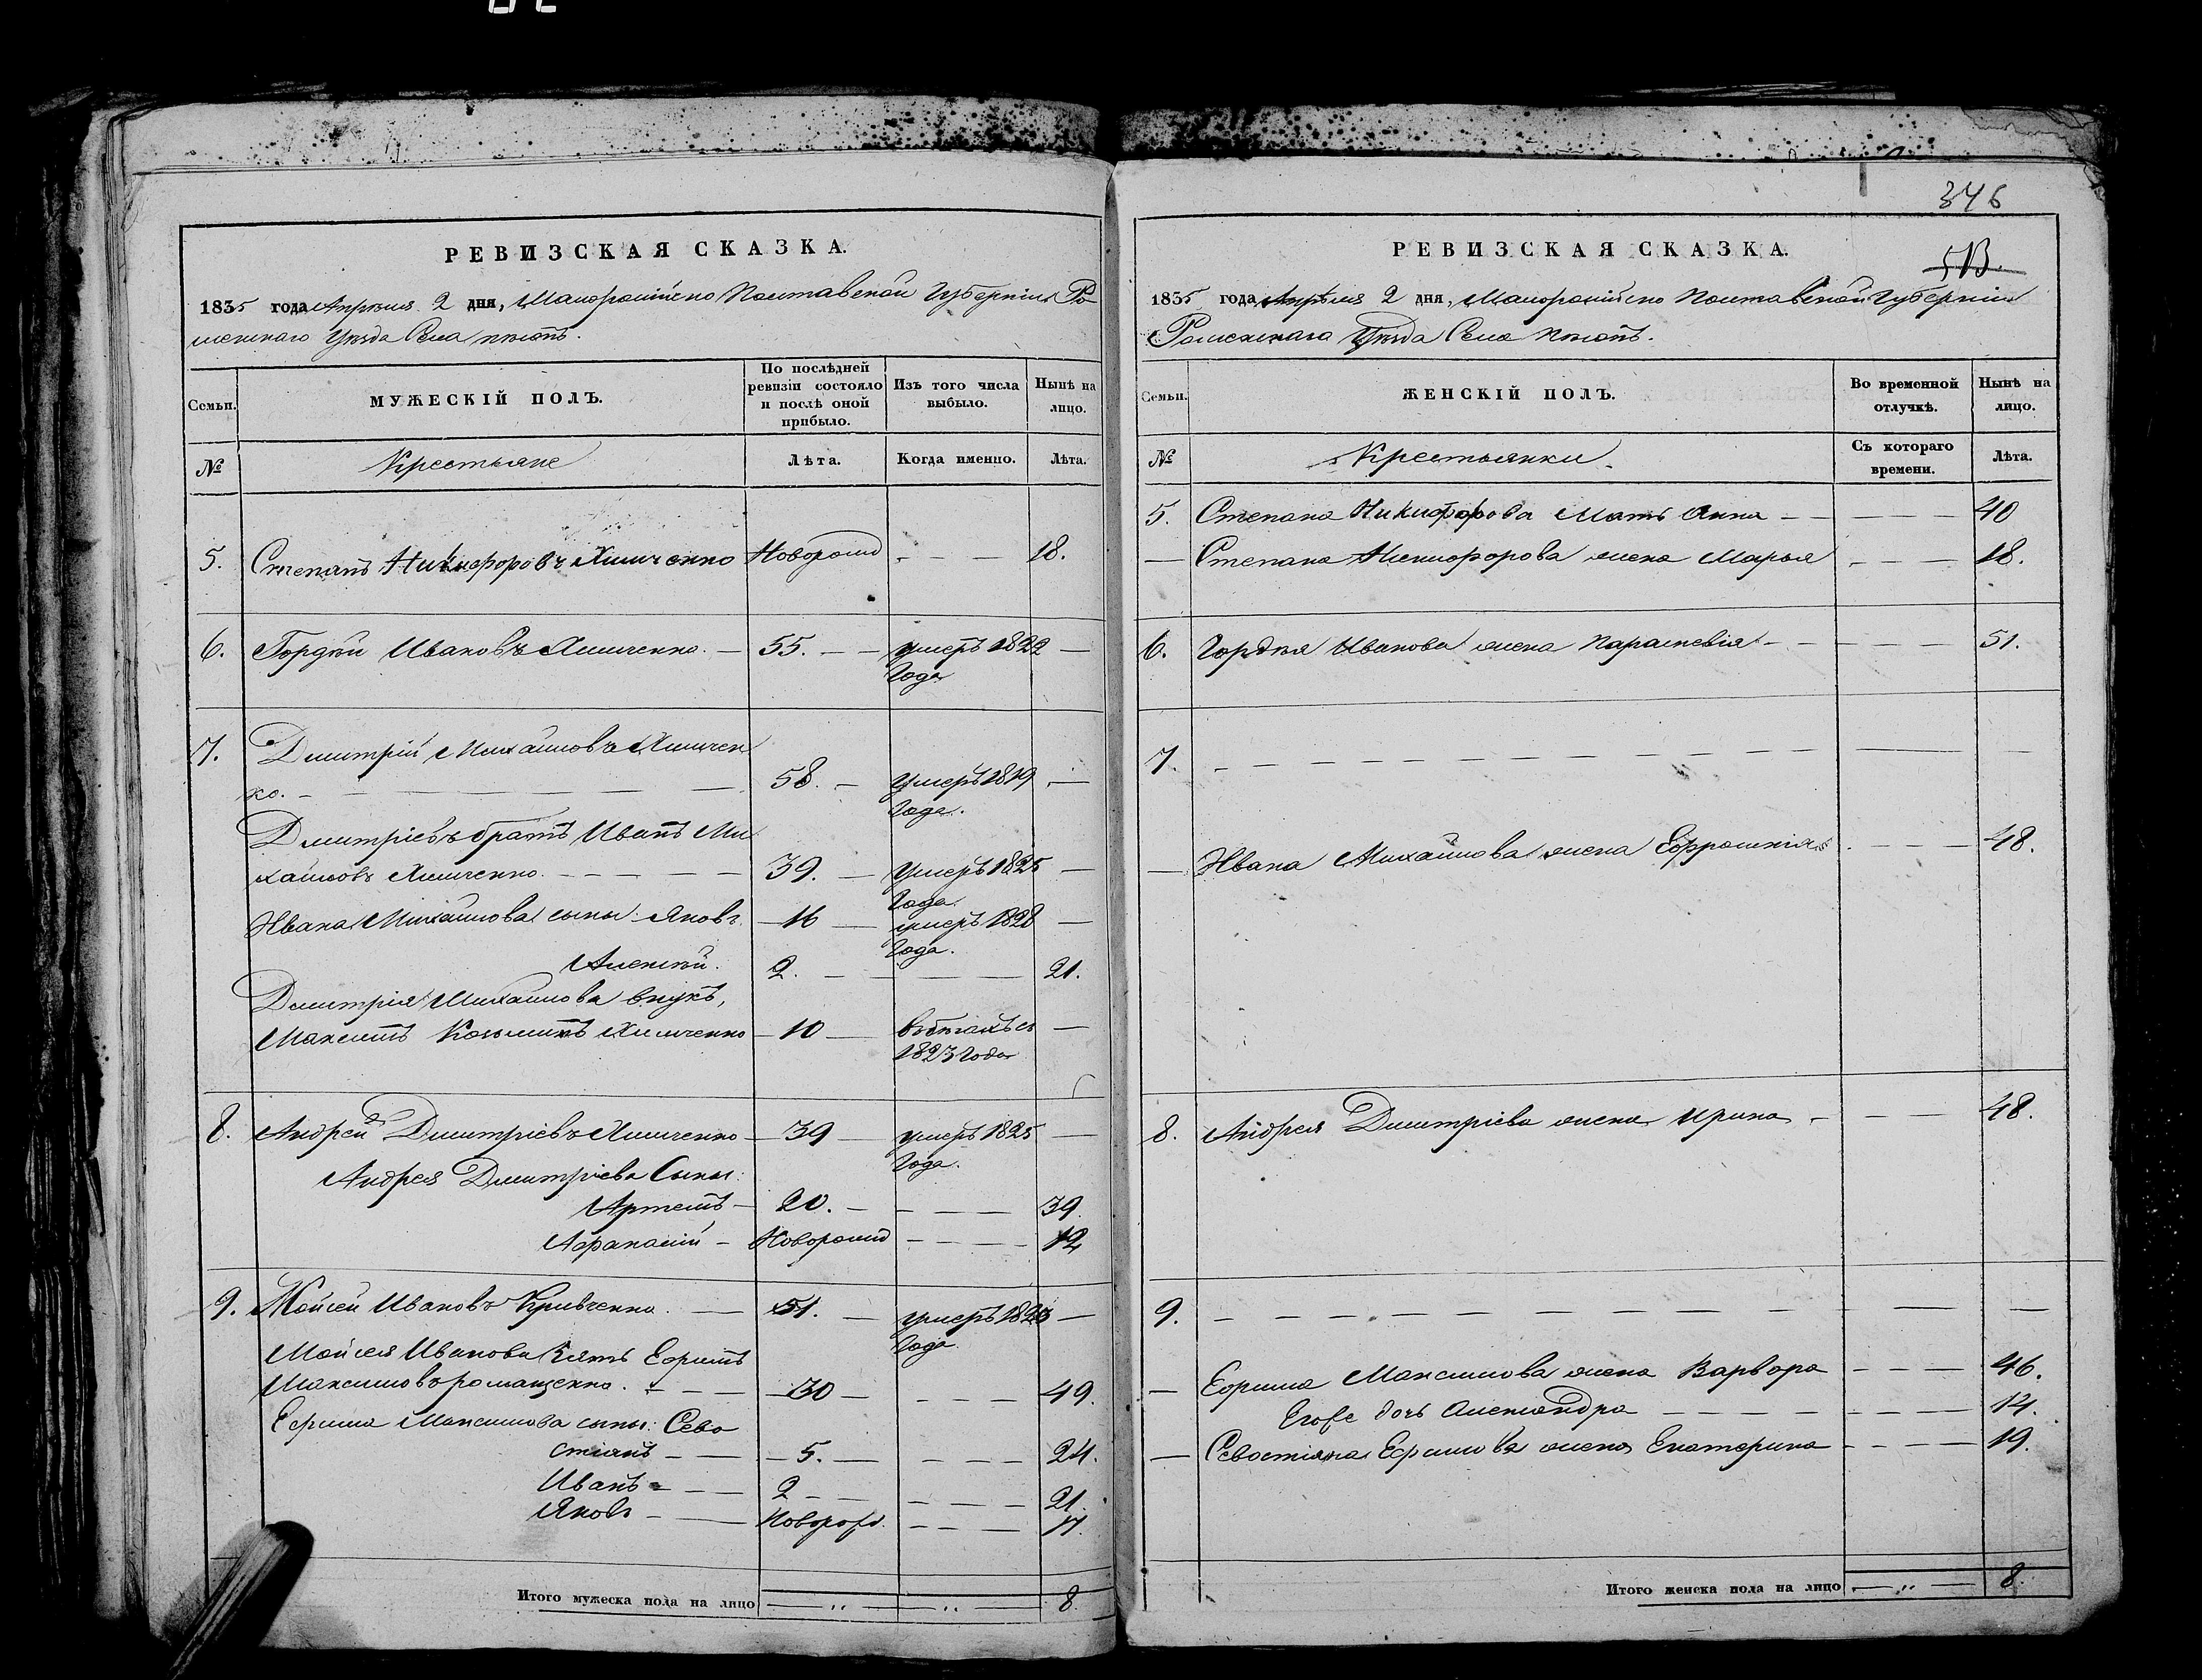 РЕВИЗСКАЯ СКАЗКА.
1835 года Апрѣля 2 дня, Малоросійско Полтавской Губерніи Ро
менскаго Уѣзда Села
Семьи.
МУЖЕСКІЙ ПОЛЪ.
По послѣдней ревизіи состояло и послѣ оной прибыло.
Изъ того числа выбыло.
Нынѣ на лицо.
№
Крестьяне
Лѣта.
Когда именно.
Лѣта.
5. Степанъ Никифоровъ Новорожд — — 18.
6. Гордѣй Ивановъ — 55. — — умеръ 1822 —
Года
7. Дмитрій Михайловъ
ко. — 58. — Умеръ 1819 —
Года.
Дмитріевъ братъ Иванъ Ми
хайловъ — 39. — Умеръ 1825 —
Года
Ивана Михайлова сыны: Яковъ — 16 — умеръ 1828 —
Года.
Алексѣй. 2. — — — 21.
Дмитрія Михайлова внукъ,
Максимъ Козьминъ — 10 — въ бѣгахъ съ —
1823 Года
8. Андрей Дмитріевъ — 39 — умеръ 1825 —
Года.
Андрея Дмитріева Сыны:
Артемъ — 20. — — — — 39.
Афанасій — Новорожд — — — 12
9. Мойсей Ивановъ Кривченко. — 51. — умеръ 1823 —
Года
Мойсея Иванова Зять Ефимъ
Максимовъ ромащенко. — — — 30 — — — — 49.
Ефима Максимова сыны: Сево
стіянъ — — 5. — — — — 24.
Иванъ — — 2 — — — — — 21.
Яковъ — — Новорожд. — — — 17.
Итого мужеска пола на лицо — „ — „ — 8.
346
5В.
РЕВИЗСКАЯ СКАЗКА.
1835 года Апрѣля 2 дня, Малоросійско Полтавской Губерніи
Роменскаго Уѣзда Села
Семьи.
ЖЕНСКІЙ ПОЛЪ.
Во временной отлучкѣ.
Нынѣ на лицо.
№
Крестьянки.
Съ котораго времени.
Лѣта.
5. Степана Никифорова Мать Анна — — — — 40
— Степана Никифорова жена Марья — — — 18.
6. Гордѣя Иванова жена Параскевія — — — — — 51.
7. — — — — — — — — — —
— Ивана Михайлова жена Ефросинія — — — 48.
8. Андрея Дмитріева жена Ирина — — — 48.
9. — — — — — — — — — —
— Ефима Максимова жена Варвора — — — 46.
Егоже дочь Александра — — — — — — 14.
— Севостіяна Ефимова жена Екатерина — — — 19.
Итого женска пола на лицо — „ — 8.